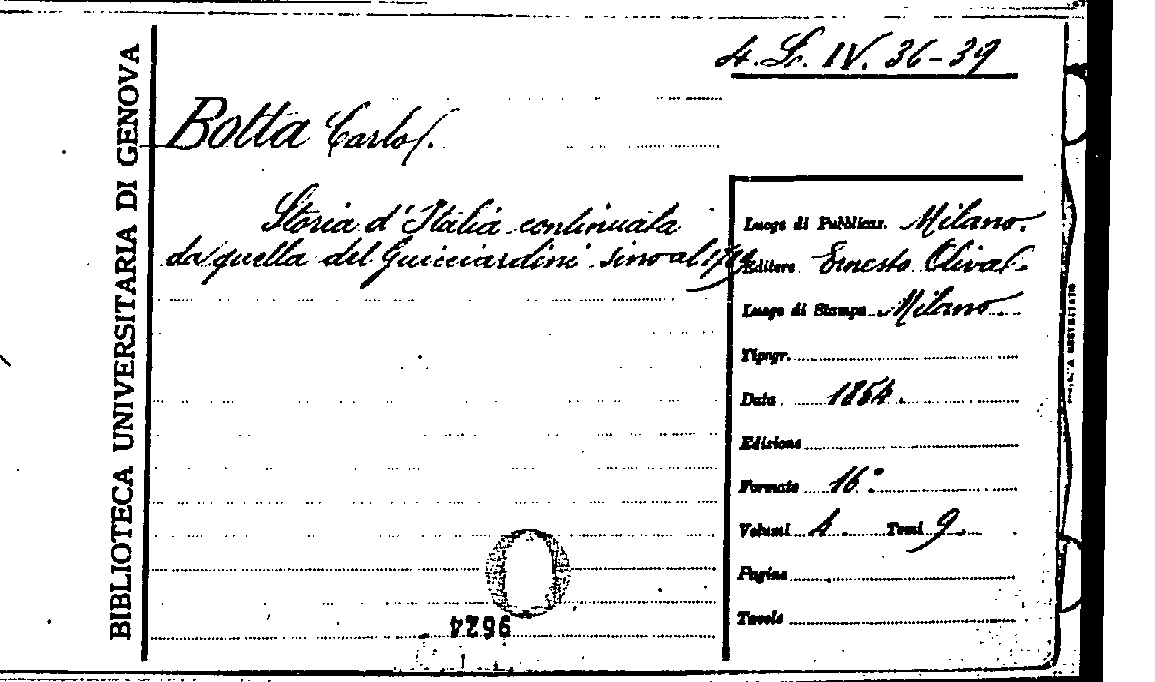 4. L. IV. 36-39
BIBLIOTECA UNIVERSITARIA DI GENOVA
Botta Carlo.
Storia d'Italia continuata
da quella del Guicciardini sino al
Luogo di Pubblicaz. Milano.
Editore Ernesto Oliva.
Luogo di Stampa Milano
Tipogr.
Data 1854.
Edizione
Formato 16°.
Volumi 4. Tomi 9
Pagine
Tavole
9624